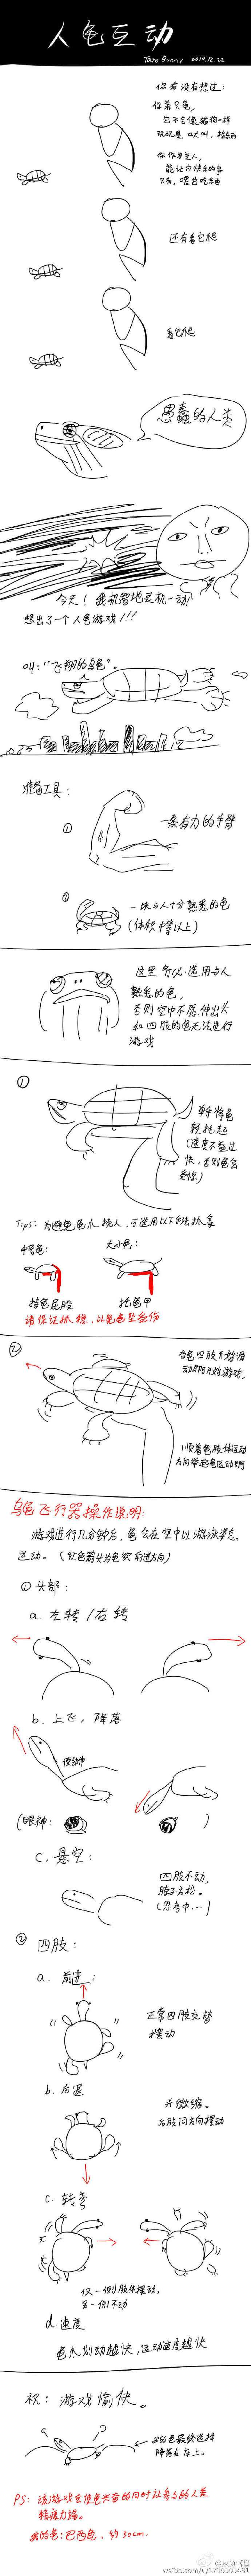 人龟互动
Taro Bunny 2014.12.22
你有没有想过:
你养只龟,
它不会像猫狗一样
玩玩具、口犬叫、捡东西
你作为主人,
能让它快乐的事
只有,喂它吃东西
还有看它爬
看它爬
愚蠢的人类
今天!我机智地灵机一动!
想出了一个人龟游戏!!!
叫:"飞翔的乌龟"。
准备工具:
①
一条有力的手臂
②
一块与人十分熟悉的龟
(体积中等以上)
这里务必选用与人
熟悉的龟,
否则空中不愿伸出头
和四肢的龟无法进行
游戏
①
单手将龟
轻托起
(速度不益过
快,否则龟会
受惊)
Tips:为避免龟爪挠人,可选用以下手法抓拿
中号龟:
大小龟:
持龟屁股
托龟甲
请保证抓稳,以免龟坠落伤
②
当龟四肢开始滑
动即可开始游戏。
顺着龟肢体运动
方向举起龟运动即可
乌龟飞行器操作说明:
游戏进行几分钟后,龟会在空中以游泳姿态
运动。(红色箭头为龟欲前进方向)
①头部:
a.左转/右转
b.上飞,降落
使劲伸
(眼神:
)
c.悬空:
四肢不动,
脖子放松。
(思考中…)
②四肢:
a.前进:
正常四肢交替
摆动
b.后退
头微缩。
后肢同方向摆动
c.转弯
仅一侧肢体摆动,
另一侧不动
d.速度
龟爪划动越快,运动速度越快
祝:游戏愉快。
我的龟最终选择
降落在床上。
PS:该游戏会使龟兴奋的同时让参与的人类
精疲力竭。
我的龟:巴西龟,约30cm.
weibo.com/u/1756305481